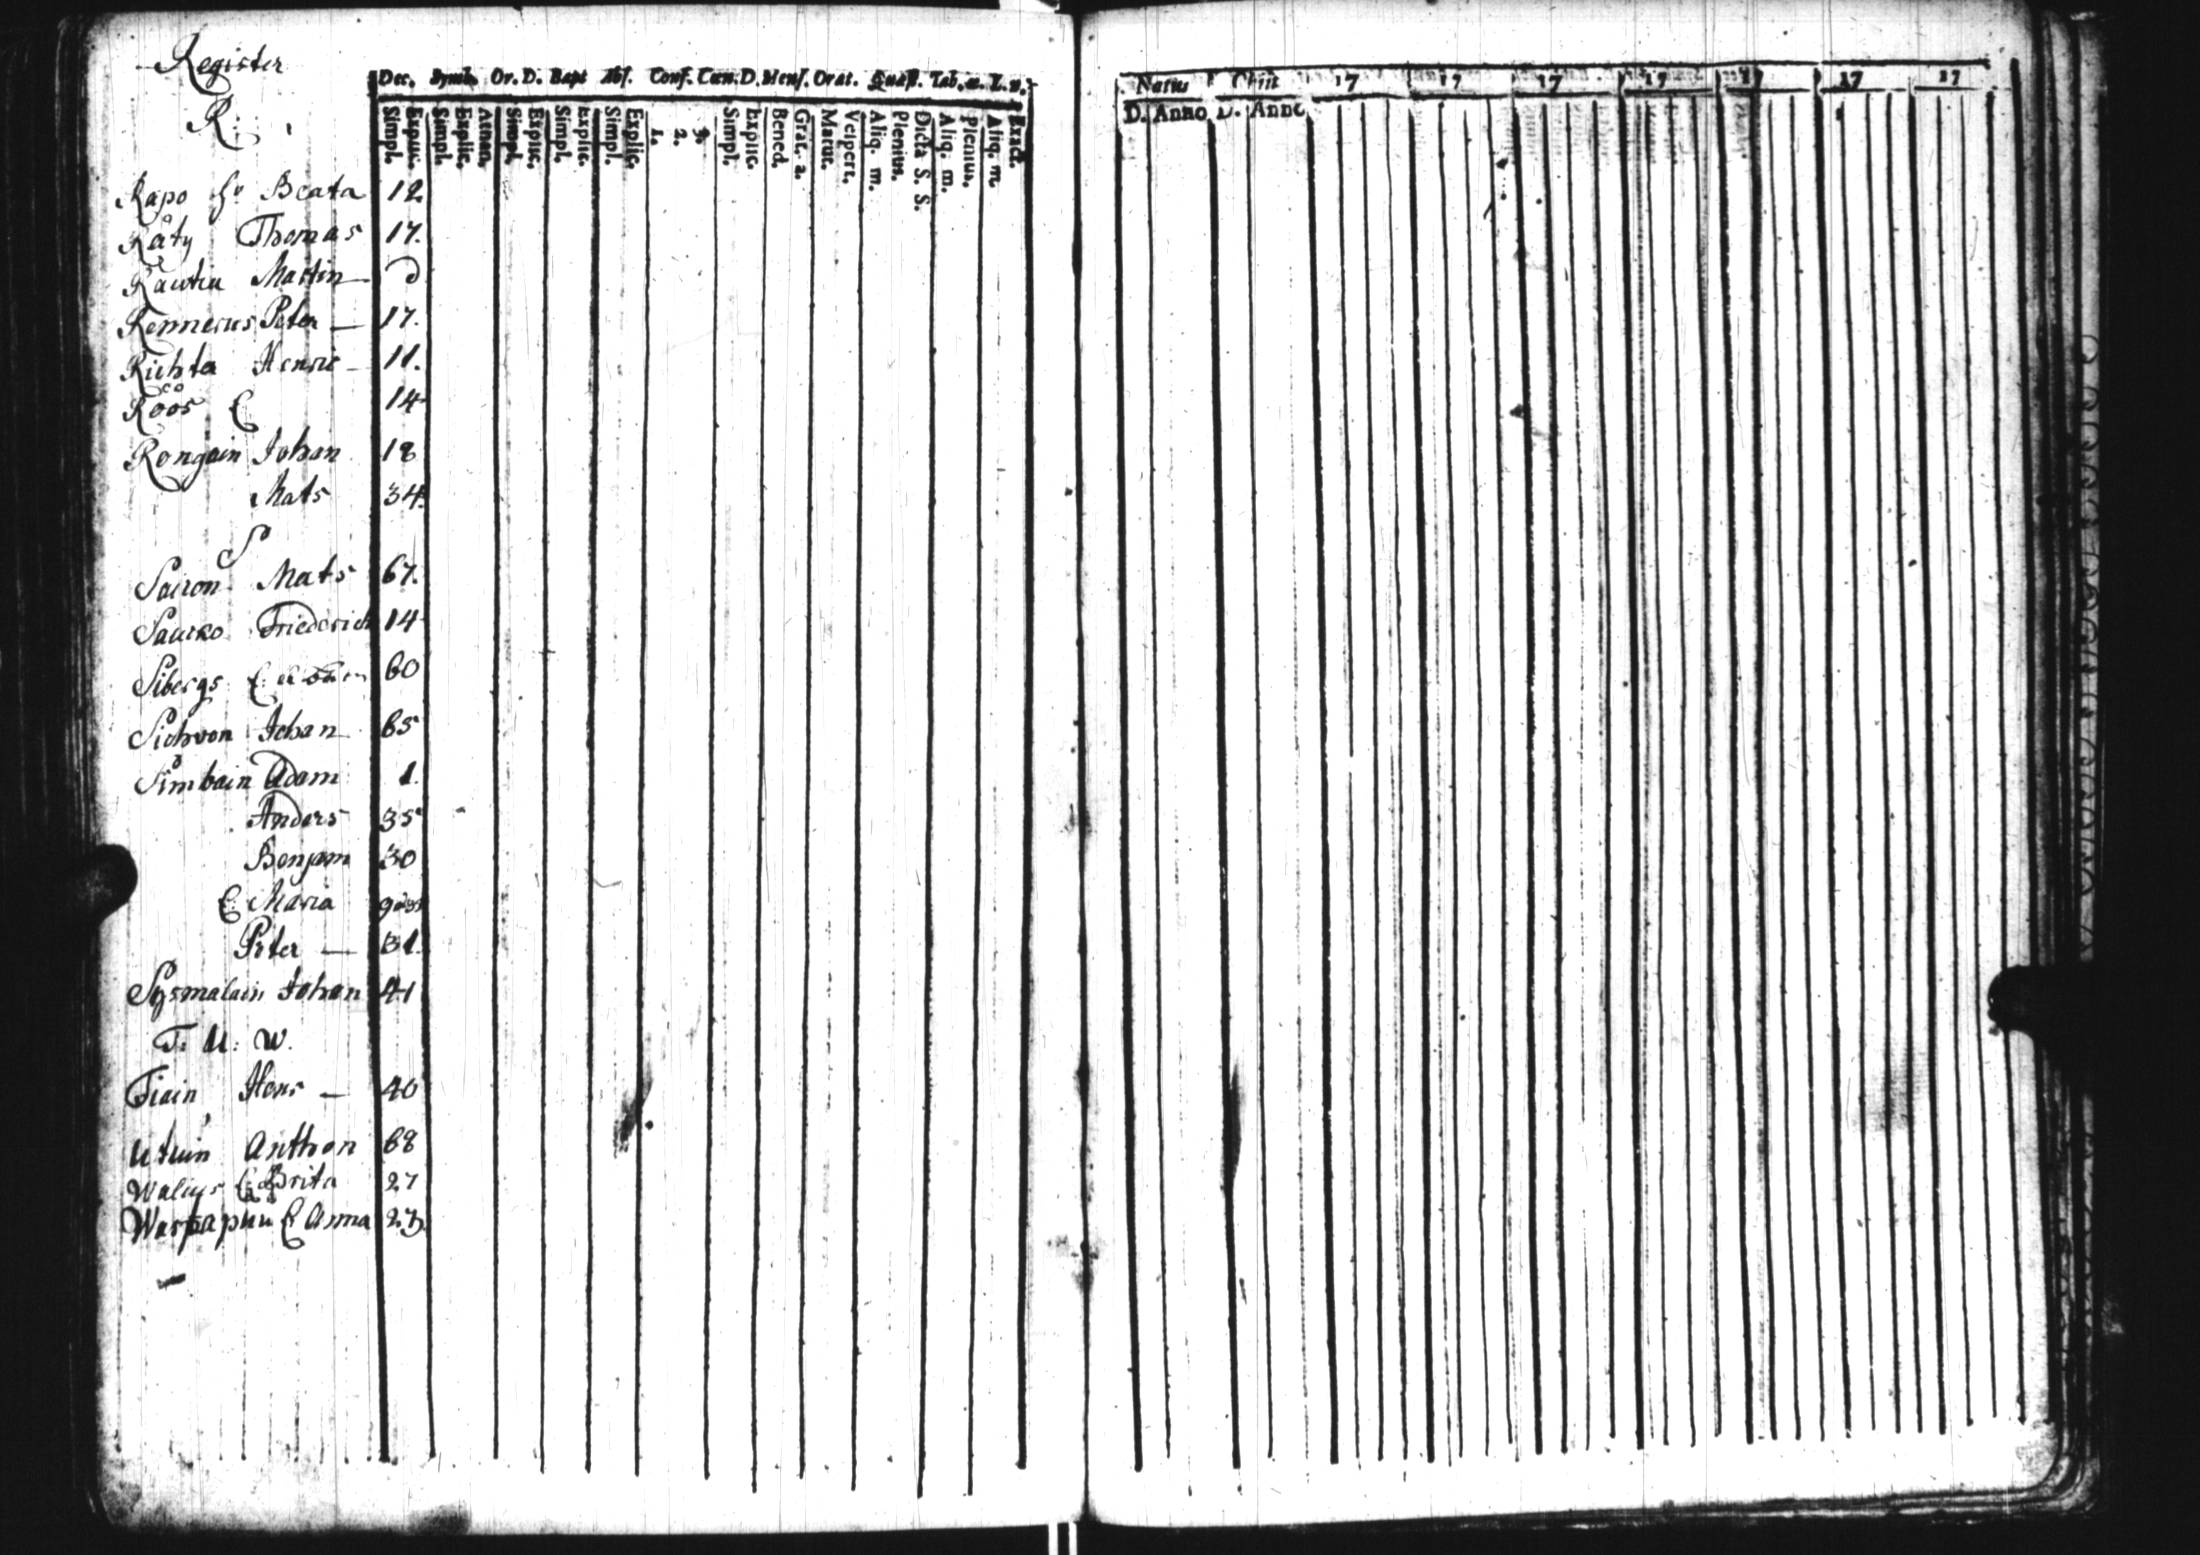 Register
R:
Dec. Symb. Or. D. Bapt Abs. Conf. Cœn. D. Mens. Orat. Quæst. Tab. œ. L. n.
Simpl. Explic. Simpl. Explic. Athan. Simpl. Explic. Simpl. Explic. Simpl. Explic. 1. 2. 3. Simpl. Explic. Bened. Grat. a. Matut. Vespert. Aliq. m. Plenius. Dicta S. S. Aliq. m. Plenius. Aliq. m Exact.
Rapo Hu Beata 12.
Råty Thomas 17.
Martin
Rennerus Peter — 17.
Richter Henric — 11.
Röös E 14
Rongain Johan 18
Mats 34.
S
Sairon Mats 67.
Saurko Friederich 14
Sibergs 60
Sichvon Johan 65
Simbain Adam 1.
Anders 35
Benjam 30
E. Maria
Peter — 31.
Sysmalain Johan 41
T: U: W.
Tiain Hans — 40
Utuin Anthon 68
Walius E. Brita 27
Warpapuu E Anna 27.
Natus Obiit 17 17 17 17 17 17 17
D. Anno D. Anno